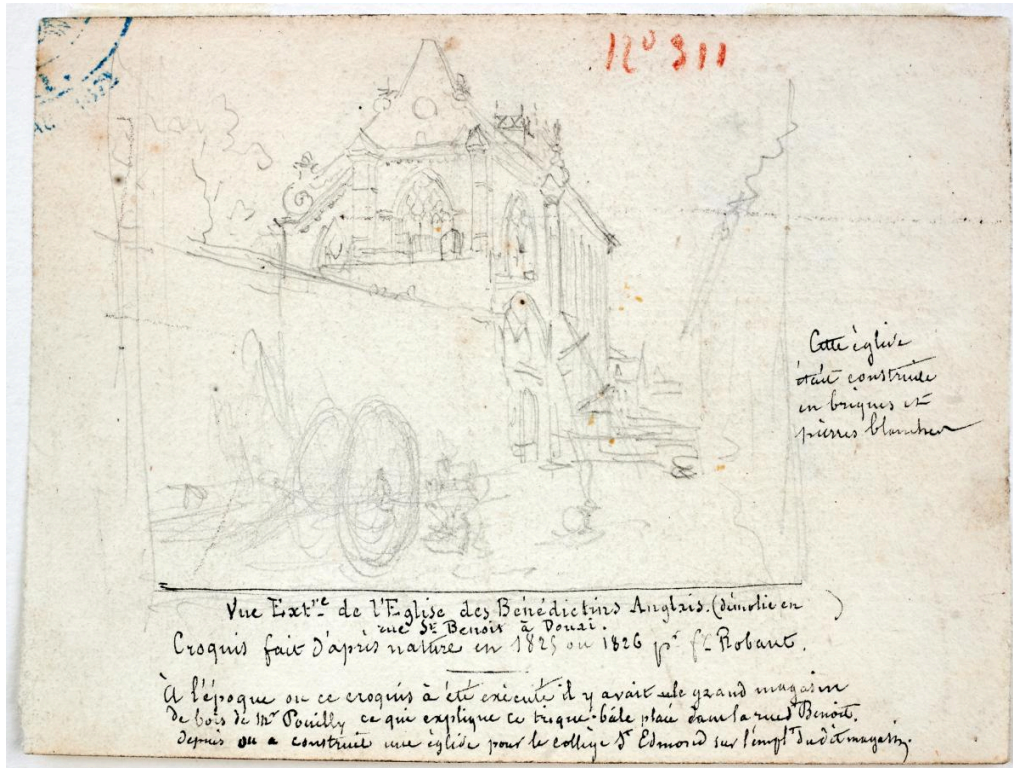 N° 311
Cette église
était construite
en briques et
pierres blanches
Vue Ext.re de l'Eglise des Bénédictins Anglais. (démolie en )
rue St Benoit à Douai.
Croquis fait d'après nature en 1825 ou 1826 pr. fx Robaut.
À l'époque ou ce croquis à été exécuté il y avait le grand magasin
de bois de Mr Pouilly ce que explique ce trique-bale placé dans la rue St Benoit.
depuis on a construit une église pour le collège St Edmond sur l'empl.t du dit magasin.